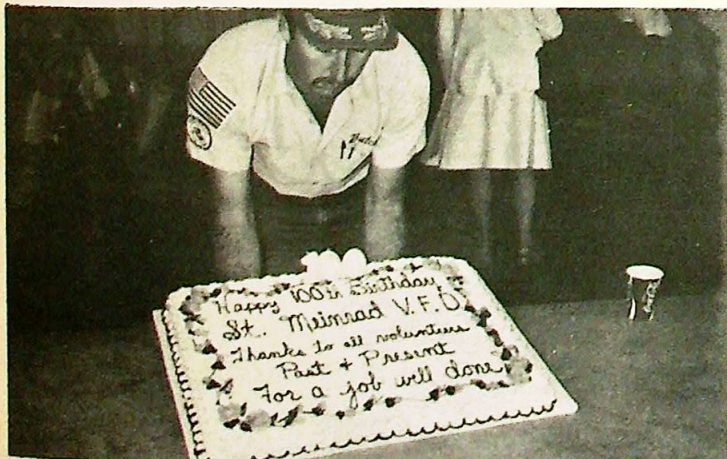 Happy 100th Birthday
St. Meinrad V.F.D.
Thanks to all volunteers
Past + Present
For a job well done